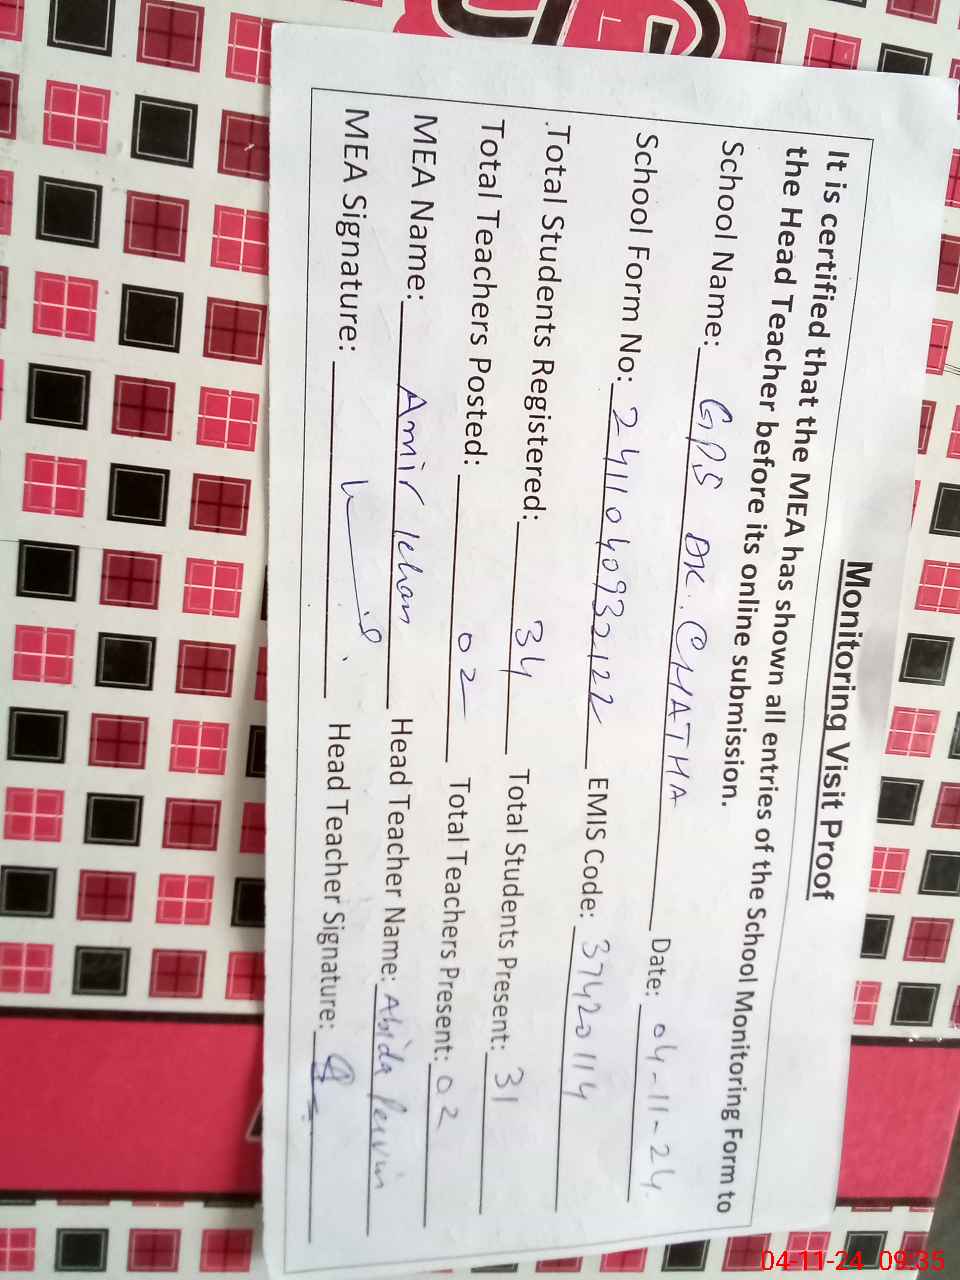 Monitoring Visit Proof
It is certified that the MEA has shown all entries of the School Monitoring Form to
the Head Teacher before its online submission.
School Name: GPS DK. CHATHA Date: 04-11-24.
School Form No: 2411040932122 EMIS Code: 37420114
.Total Students Registered: 34 Total Students Present: 31
Total Teachers Posted: 02 Total Teachers Present: 02
MEA Name: Amir Khan Head Teacher Name: Abida Pervin
MEA Signature: Head Teacher Signature:
04-11-24 09:35